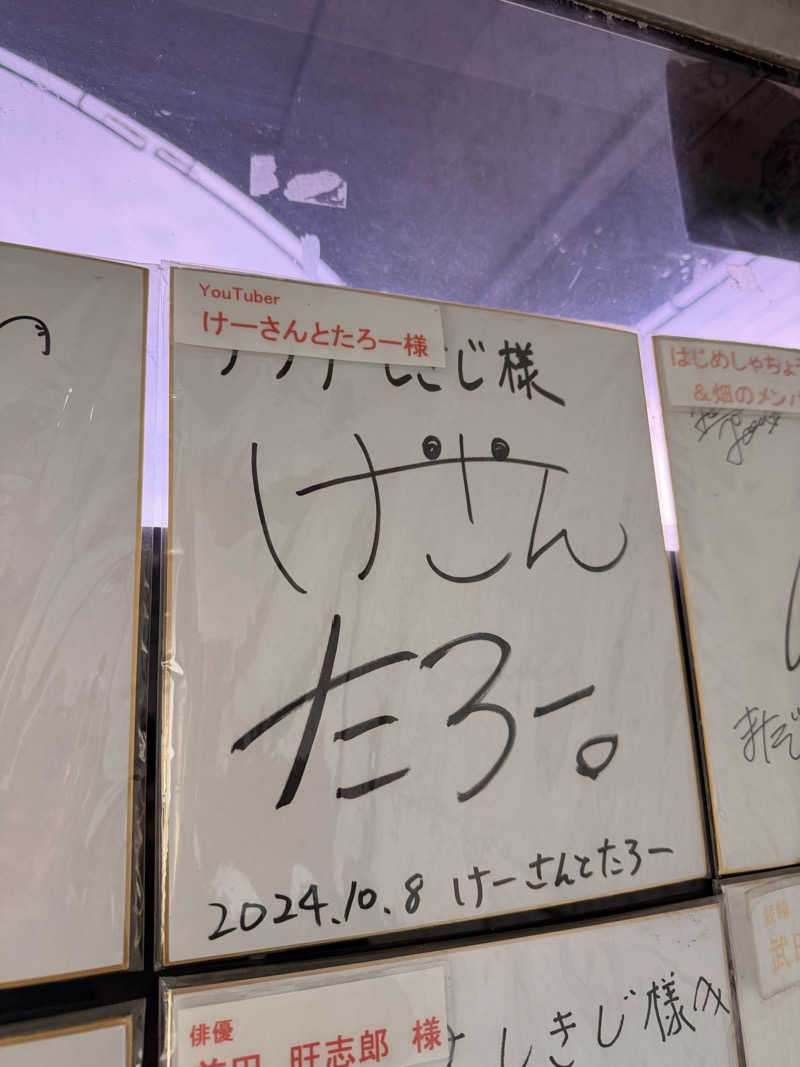 YouTuber
けーさんとたろー様
しきじ様
けーさん
たろー。
2024.10.8 けーさんとたろー
はじめしゃちょ
&畑のメンバ
俳優
旺志郎 様
しきじ様へ
武